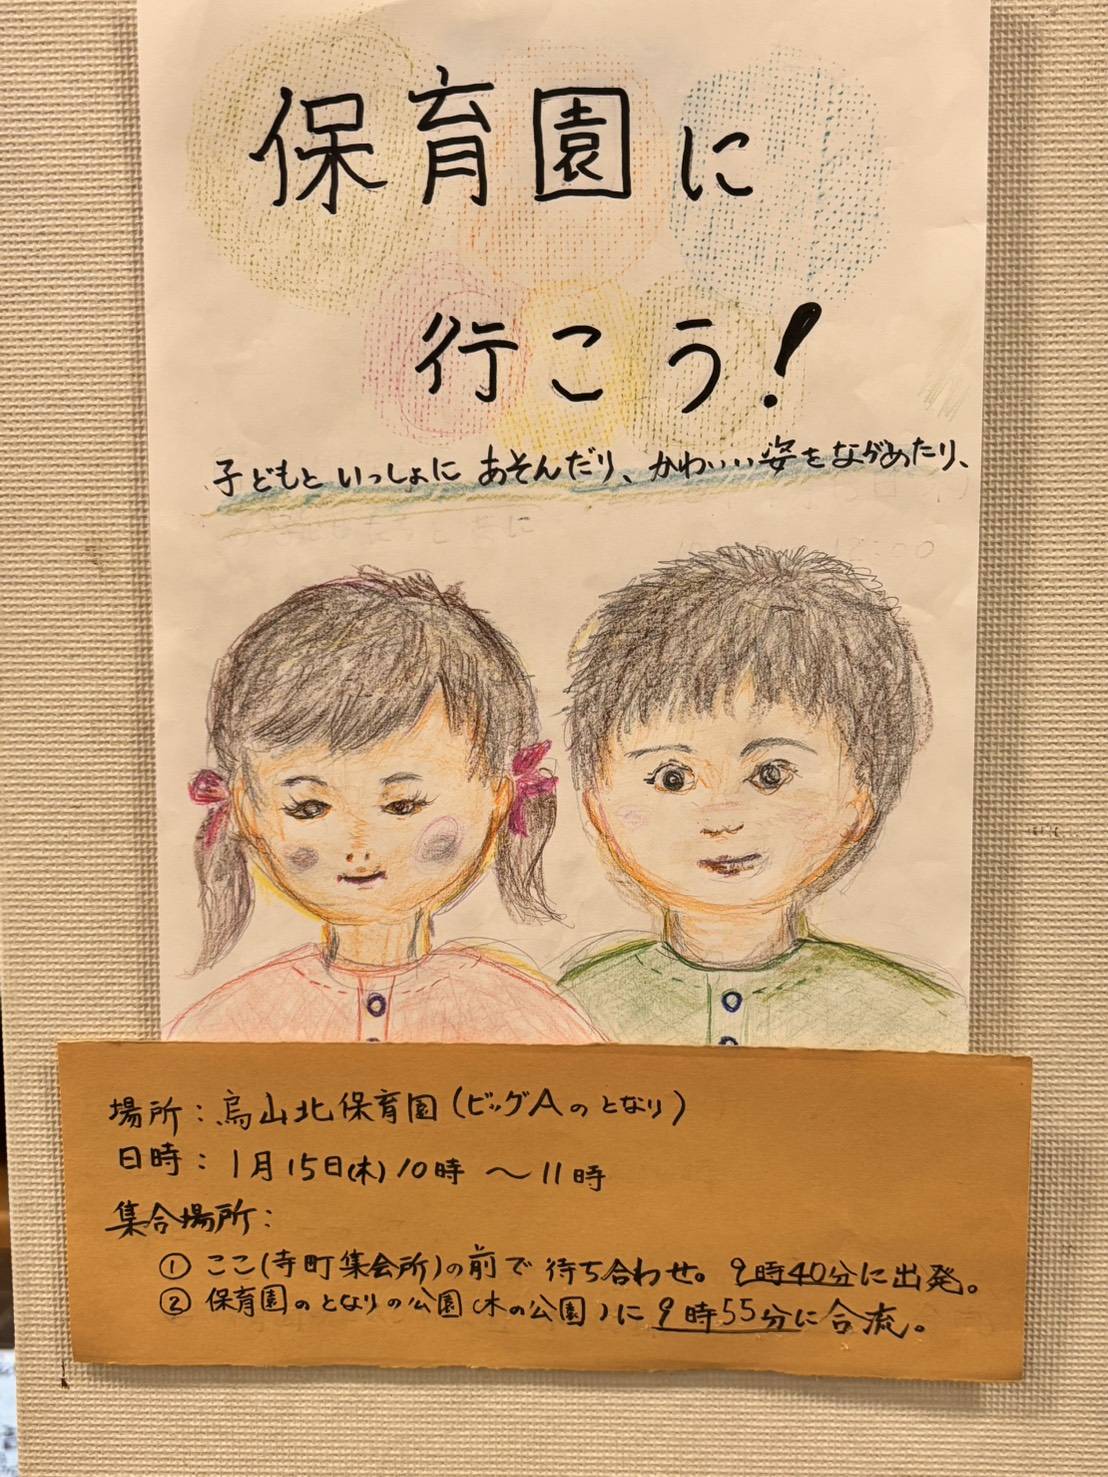 保育園に
行こう!
子どもといっしょにあそんだり、かわいい姿をながめたり、
場所:烏山北保育園(ビッグAのとなり)
日時:1月15日(木)10時〜11時
集合場所:
①ここ(寺町集会所)の前で待ち合わせ。9時40分に出発。
②保育園のとなりの公園(木の公園)に9時55分に合流。